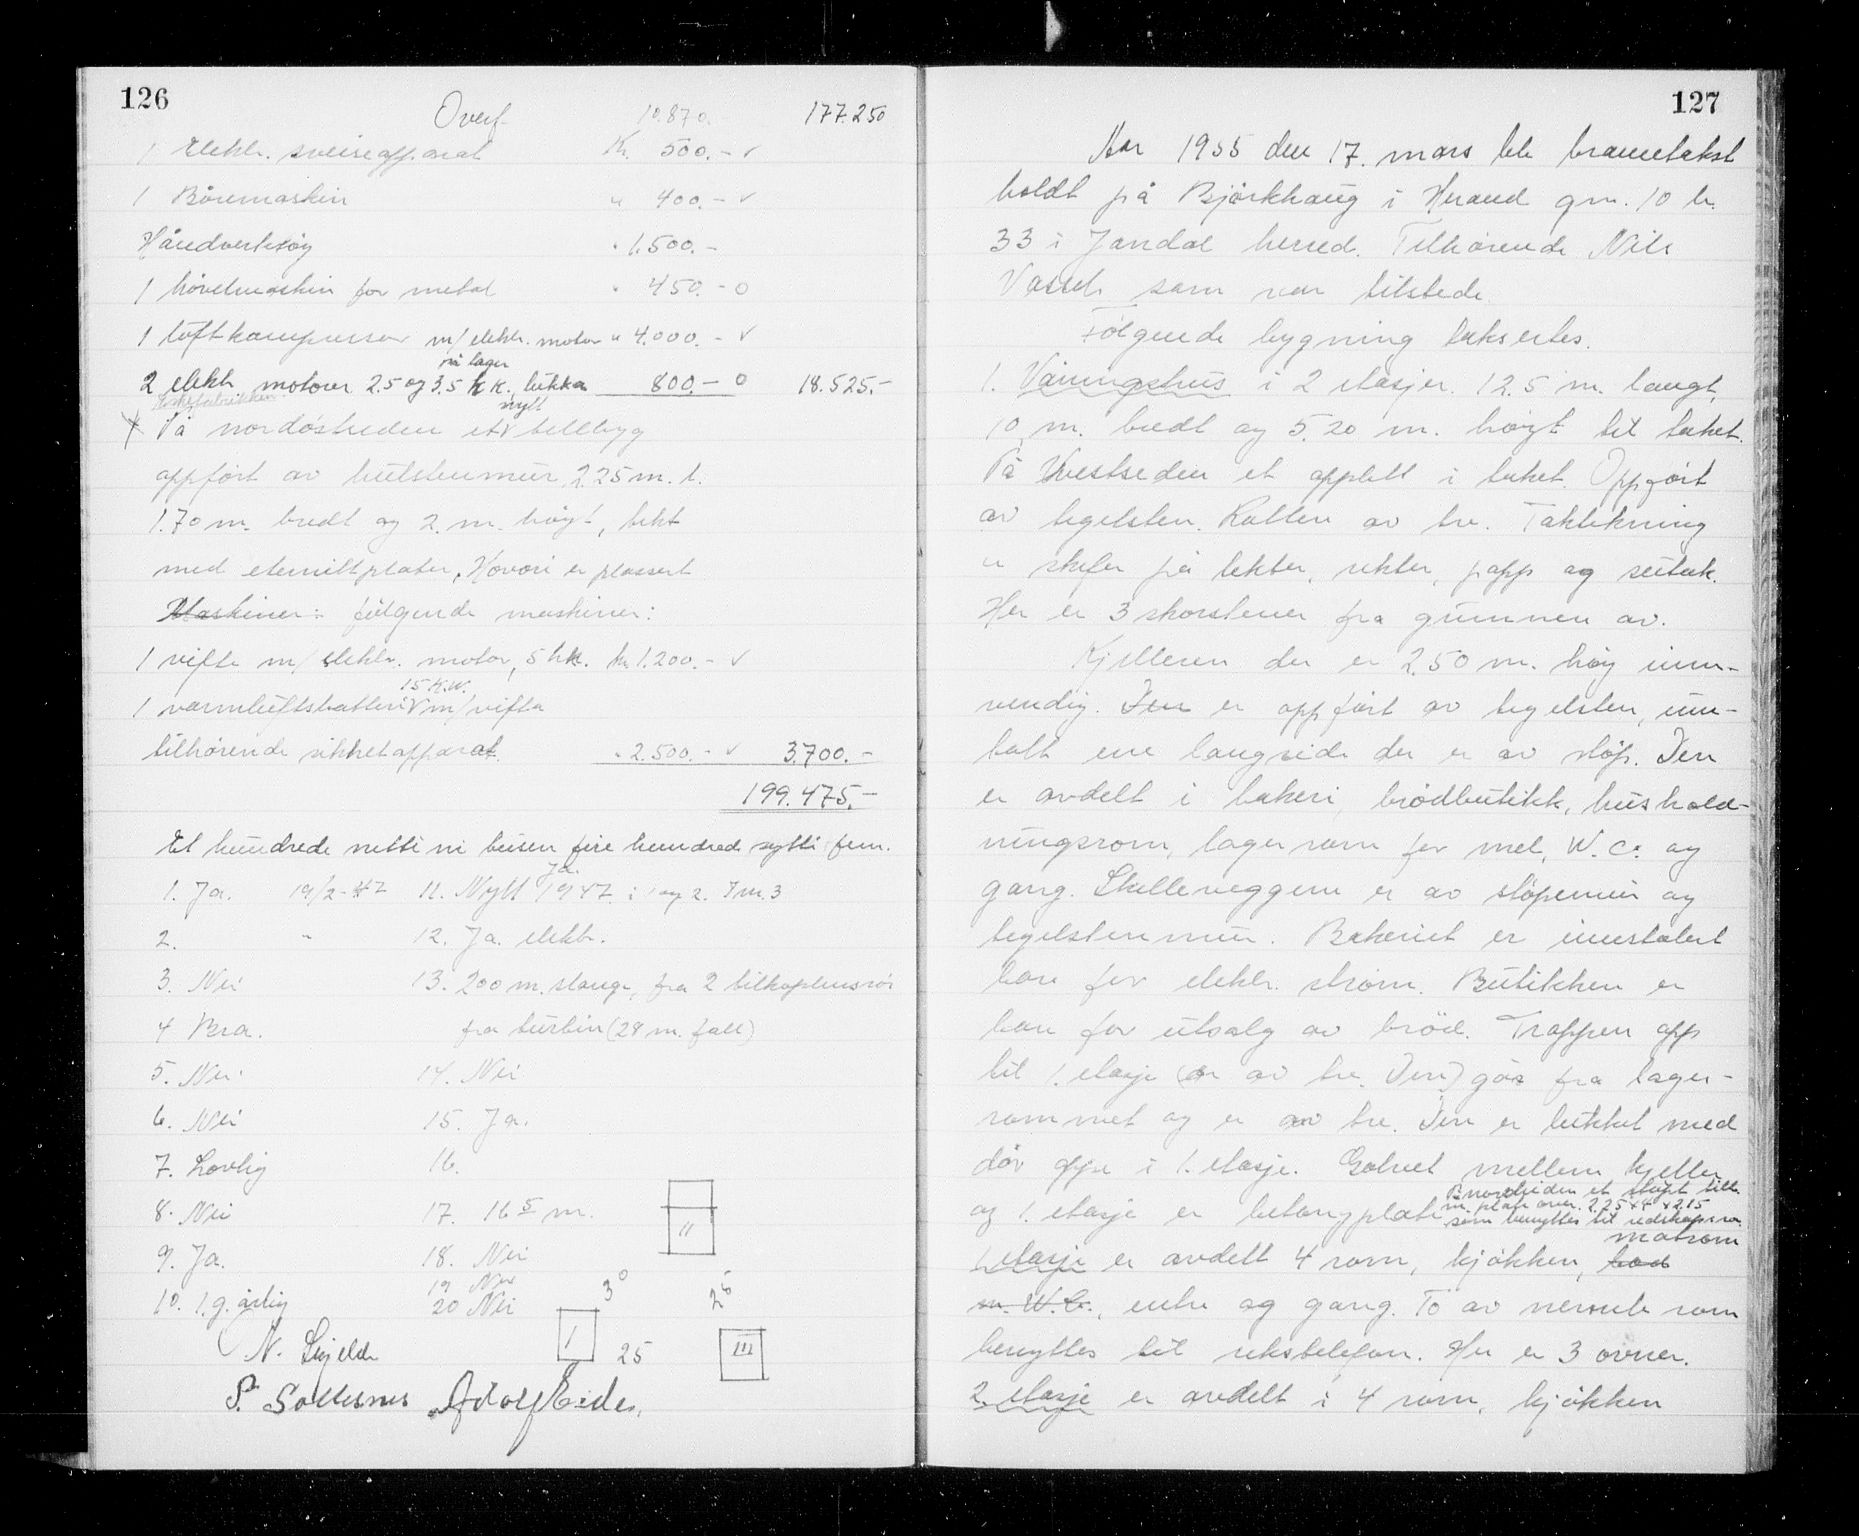 126
Overf 10.870. 177.250
1 Elektr. sveiseapparat Kr. 500.- ✓
1 Boremaskin " 400.- ✓
Håndverktøy " 1.500.-
1 høvelmaskin for metal " 450.- 0
1 luftkompressor m/ elektr. motor " 4.000.- ✓
på lager
2 elektr. motorer 2.5 og 3.5 h.k. 800.- 0 18.525.-
nytt
På nordøstsiden et tilbyg
oppført av hulstenmur 2.25 m. l.
1.70 m. bredt og 2. m. høyt, tekt
med eternittplater. Hvori er plassert
Maskiner: følgende maskiner:
1 vifte m/ elektr. motor, 5 hk. kr. 1.200.- ✓
15 K.W.
1 varmluftsbatteri m/ vifta
tilhørende sikketapparat. " 2.500.- ✓ 3.700.-
199.475.-
Et hundrede nitti ni tusen fire hundred sytti fem.
Ja.
1. Ja. 19/2-47 11. Nytt 1947 i 1 og 2. I nr. 3
2. " 12. Ja. elektr.
3. Nei 13. 200 m. slange, fra 2 tilkoplinsrør
4 Bra. fra turbin (28 m. fall)
5. Nei 14. Nei
6. Nei 15. Ja.
7. Lovlig 16.
8. Nei 17. 16 5 m.
II
9. Ja. 18. Nei
19 Nei
10. 1. g. årlig 20 Nei 3 0 2 5
N. Skjelde I 25 III
S. Solesnes Adolf Eide.
127
Aar 1955 den 17. mars ble brannetakst
holdt på Bjørkhaug i Herand gnr. 10 br.
33 i Jondal herred. Tilhørende Nils
Vassel som var tilstede.
Følgende bygning taksertes.
1. Våningshus i 2 etasjer. 12.5 m. langt,
10 m. bredt og 5.20 m. høgt til taket.
På Vestseden et opplett i taket. Oppført
av tegelsten. Loften av tre. Taktekning
er skifer på lekter, rekter, papp og sutak.
Her er 3 skorstener fra grunnen av.
Kjelleren der er 2.50 m. høy inn-
vendig. Den er oppført av tegelsten, unn-
tatt ene langside der er av støp. Den
er avdelt i bakeri, brødbutikk, hushold-
ningsrom, lagerrom for mel, W.C. og
gang. Skilleveggene er av støpemur og
tegelstenmur. Bakeriet er innstalert
bare for elektr. strøm. Butikken er
bare for utsalg av brød. Trappen opp
til 1. etasje (er av tre. Den) går fra lager-
rommet og er av tre. Den er lukket med
dør oppe i 1. etasje. Golvet mellem kjeller
På nordsiden et støpt tilb.
m. plate over. 2.25 x 4 x 2.15
og 1. etasje er betongplate
som benyttes til redskapsro.
matrom
1. etasje er avdelt 4 rom, kjøkken, bad
m. W.C., entre og gang. To av nevnte rom
benyttes til rikstelefon. Her er 3 ovner.
2. etasje er avdelt i 4 rom, kjøkken